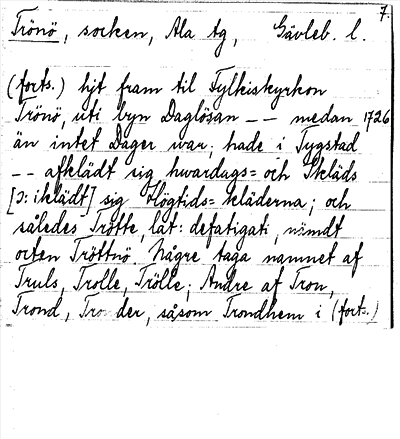 7.
Trönö, socken, Ala tg, Gävleb. l.
(forts.) hjt fram til Fylkiskyrkon
Trönö, uti byn Daglösan - - medan 1726
än intet Dager war; hade i Tygstad
- - afklädt sig hwardags= och Ikläds
[ɔ: iklädt] sig Högtids= kläderna; och
således Trötte, lat: defatigati, nämdt
orten Tröttnö. Någre taga namnet af
Truls, Trolle, Trölle; Andre af Tron,
Trond, Tronder, såsom Trondhem i (forts.)